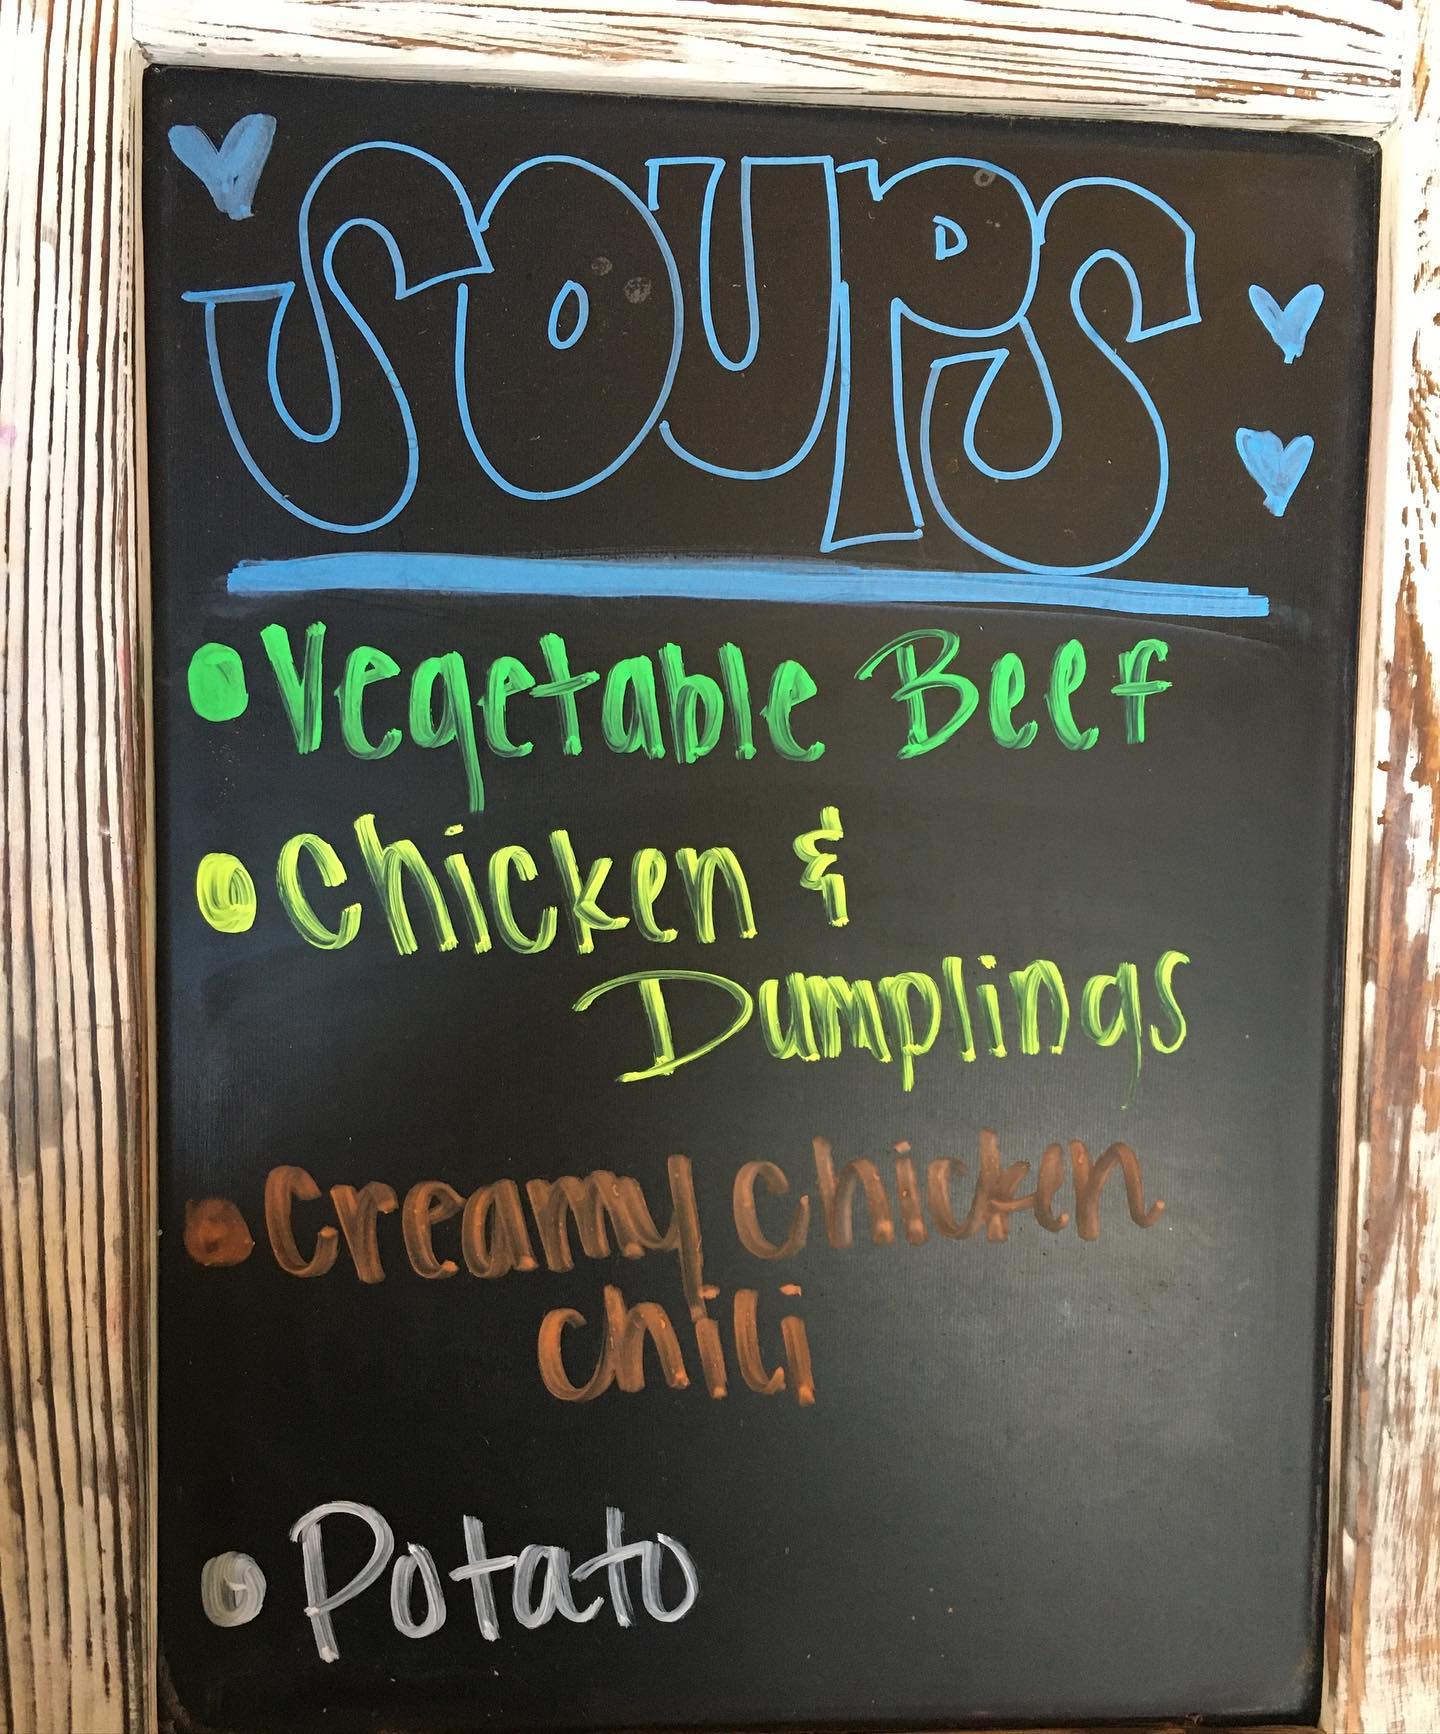 SOUPS
• Vegetable Beef
• Chicken &
Dumplings
• Creamy Chicken
chili
• Potato